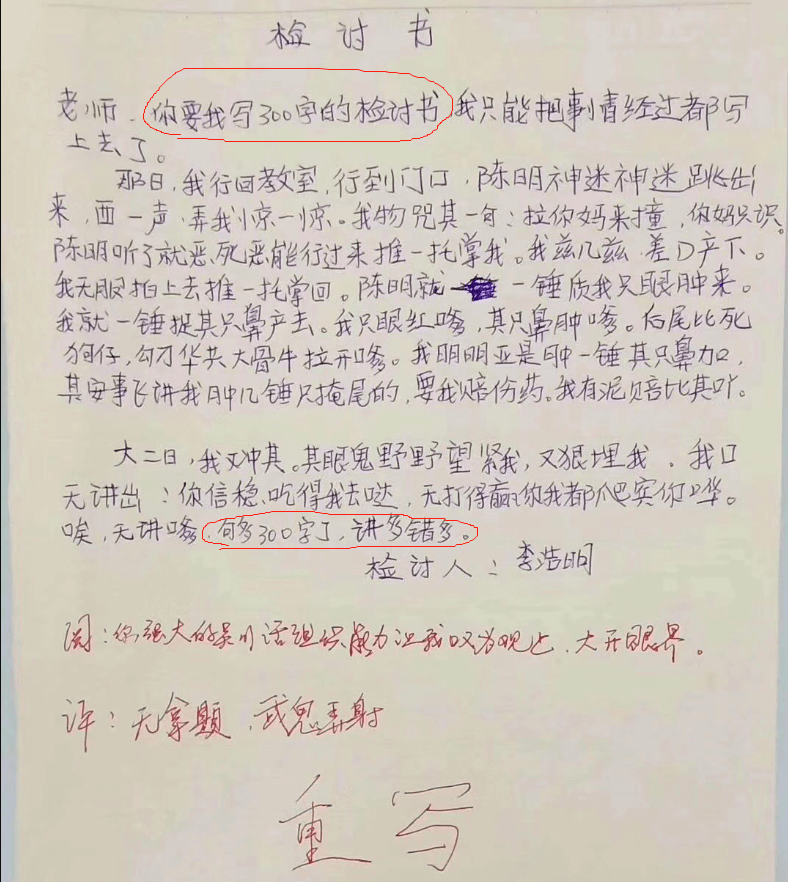 检讨书
老师、你要我写300字的检讨书我只能把事情经过都写
上去了。
那日,我行回教室,行到门口,陈明神迷神迷跳出
来,西一声弄我惊一惊。我物咒其一句:拉你妈来撞,你妈只识。
陈明听了就恶、死恶能行过来推一托掌我。我兹几兹差D产下。
我无服拍上去推一托掌回。陈明就一锤质我只眼肿来。
我就一锤捉其只鼻产去。我只眼红嗲,其只鼻肿嗲。后尾比死
狗仔,勾刁华共大骨牛拉开嗲。我明明亚是中一锤其只鼻加,
其安事飞讲我中几锤只掩尾的,要我赔份药。我有泥赔比其吖。
大二日,我又冲其。其眼鬼野野望紧我,又狠埋我。我口
无讲出:你信稳、吃得我去哒,无打得赢你我都爬实你哗。
唉,无讲嗲,句多300字了,讲多错多。
检讨人:李浩明
阅:你强大的吴川话组织能力让我叹为观止、大开眼界。
评:无拿题,武鬼弄射
重写